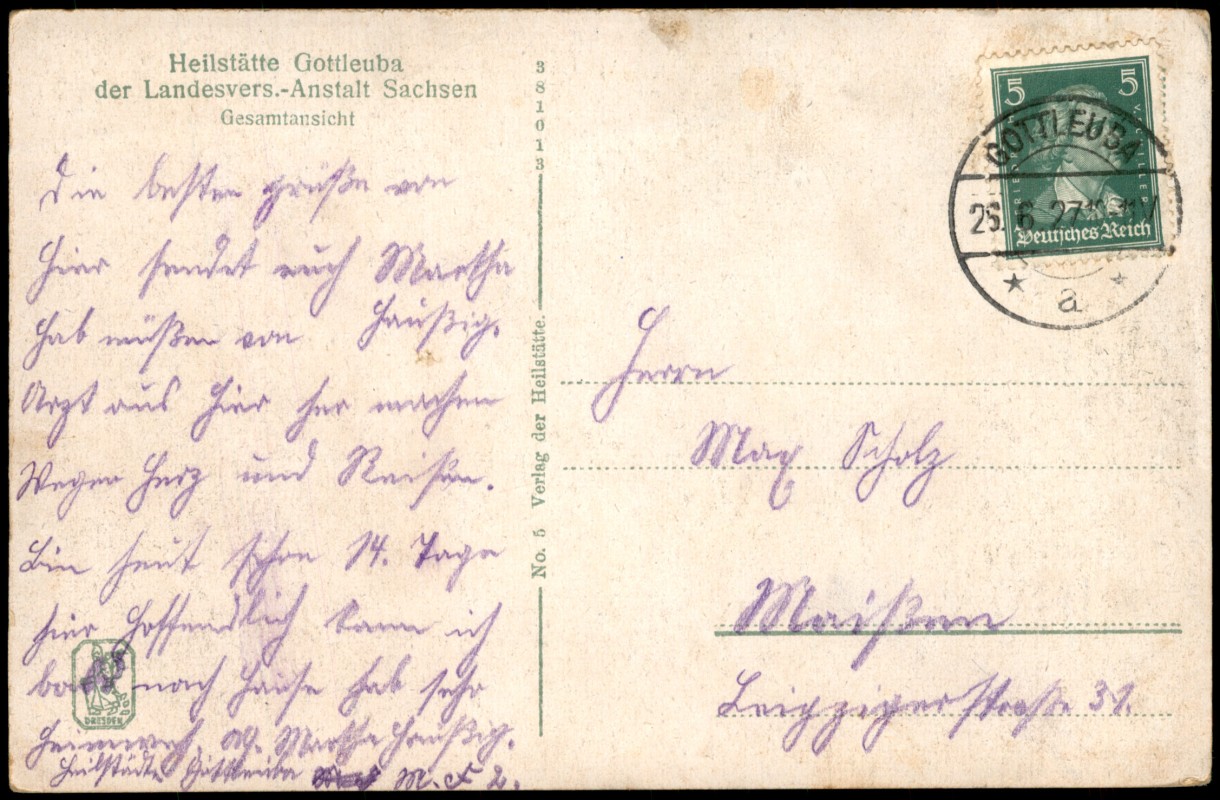 Heilstätte Gottleuba
der Landesvers.-Anstalt Sachsen
Gesamtansicht
Die besten grüße von
hier sendet euch Martha
hab müßen von Haußig.
Arzt aus hier her machen
Wegen Herz und Reißen.
Bin heut schon 14. Tage
hier hoffendlich kann ich
bald nach Hause hab sehr
Heimweh. Martha Haußig.
Heilstädte Gottleuba M. F 2.
DRESDEN
381013
No. 5 Verlag der Heilstätte.
5 5
Deutsches Reich
GOTTLEUBA
26. 6. 27
a
Herrn
Max Scholz
Meißen
Leipzigerstraße 31.